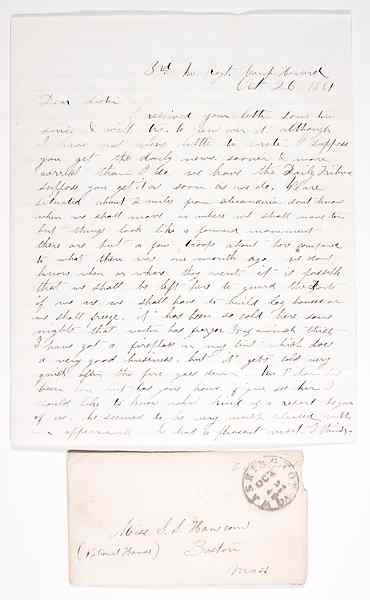 3rd Me Regt Camp Howard
Oct 26 1861
Dear Sister
I received your letter some time
since & will try to answer it although
I have not very little to write I suppose
you get the daily news sooner & more
correct than I do we have the Daily Tribune
suppose you get it as soon as we do. We are
situated about 2 miles from alexandria dont know
when we shall move or where we shall move to
but things look like a forward movement
there are but a few troops about here compared
to what there was one month ago we dont
know when or where they went it is possible
that we shall be left here to guard the forts
if we are we shall have to build log houses or
we shall freeze. it has been so cold here some
nights that water has froze
I have got a fireplace in my tent which does
a very good business but it gets cold very
quick after the fire goes down
been has gone home if you see her I
should like to know what kind of a report he gave
of us. he seemed to be very much pleased with
appearance he had a pleasant visit I think
WASHINGTON
OCT
Miss S. S. Hanscom
Boston
Mass